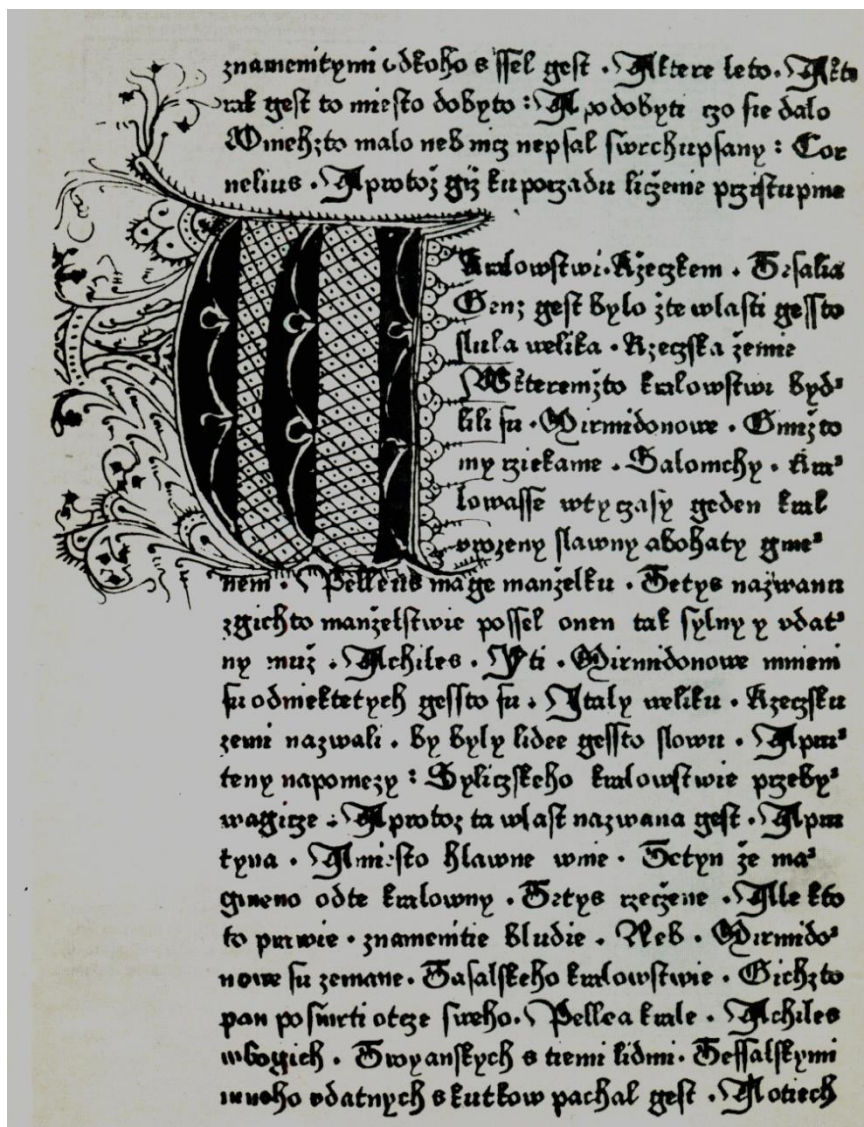 znamenitymi odkoho s ssel gest . Aktere leto . Akto
rak gest to miesto dobyto : A podobyti czo sie dalo
Omehzto malo neb nicz nepsal swrchupsany : Cor
nelius . Aprotoż giż kuporzadu liczenie przistupme
Kralowstwi . Rzeczkem . Tesalia
Genz gest bylo żte wlasti gessto
slula welika . Rzeczska żemie
Wkteremżto kralowstwi byd⸗
lili su . Mirmidonowe . Gimiżto
my rziekame . Salomchy . Kra⸗
lowasse wty czasy geden kral
vrozeny slawny abohaty gme⸗
nem . Pelleus mage manżelku . Tetys nażwanu
zgichto manżelstwie possel onen tak sylny y vdat⸗
ny muż . Achiles . Yti . Mirmidonowe mnieni
su odniektetych gessto su . Italy weliku . Rzeczsku
zemi nazwali . by byly lidee gessto slowu . Apru⸗
teny napomezy : Syliczskeho kralowstwie przeby⸗
wagicze . Aprotoz ta wlast nazwana gest . Apru
tyna . Amiesto hlawne wnie . Tetyn że ma⸗
gmeno odte kralowny . Tetys rzeczene . Ale kto
to prawie . znamenitie bludie . Neb . Mirmido⸗
nowe su zemane . Tasalskeho kralowstwie . Gichzto
pan po smrti otcze sweho . Pellea krale . Achiles
wbogich . Troyanskych s tiemi lidmi . Tessalskymi
mnoho vdatnych skutkow pachal gest . Aotiech